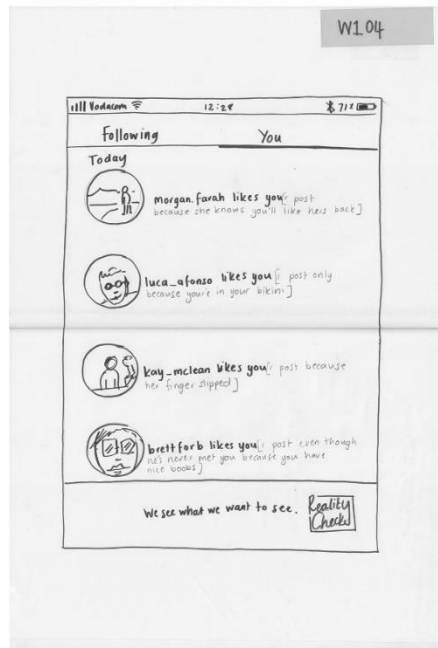 W104
Vodacom 12:28 71%
Following You
Today
morgan.farah likes you[r post
because she knows you'll like hers back]
luca_afonso likes you[r post only
because you're in your bikini]
kay_mclean likes you[r post because
her finger slipped]
brettforb likes you[r post even though
he's never met you because you have
nice boobs]
We see what we want to see.
Reality
Check